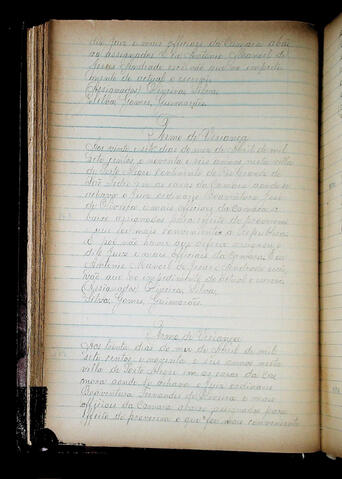 dito Juiz e mais officiaes da Camara abai
xo assignados. E eu Antonio Manoel de
Jesus Andrade escrivão que no impedi
mento do actual o escrevi.
(Assignados) Oliveira, Silva,
Silva, Gomes, Guimarães.
Termo de Vereança
Aos vinte e seis dias do mez de Abril de mil
sete centos e noventa e seis annos nesta villa
de Porto Alegre Continente do Rio Grande de
São Pedro em as casas da Camara aonde se
achava o Juiz ordinario Boaventura Jose
de Oliveira e mais officiaes da Camara a
baixo assignados para effeito de proverem
que for mais conveniente a Republica
E por não haver que assignarem o
dito Juiz e mais officiaes da Camara. Eu
Antonio Manoel de Jesus Andrade escri
vão que no impedimento do actual o escrevi
(Assignados) Oliveira, Silva,
Silva, Gomes, Guimarães.
Termo de Vereança
Aos trinta dias do mez de Abril de mil
sete centos e noventa e seis annos nesta
villa de Porto Alegre em as casas da Ca
mara aonde se achava o Juiz ordinario
Boaventura de Oliveira e mais
officiaes da Camara abaixo assignados para
effeito de proverem o que for mais conveniente